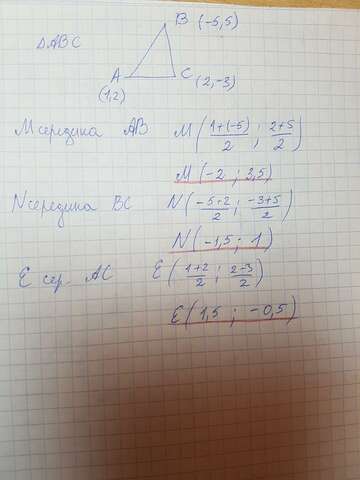 B (-5,5)
△ABC
A C (2,-3)
(1,2)
M середина AB M(1+(-5)/2 ; 2+5/2)
M(-2 ; 3,5)
N середина BC N(-5+2/2 ; -3+5/2)
N(-1,5 ; 1)
E сер. AC E(1+2/2 ; 2-3/2)
E(1,5 ; -0,5)